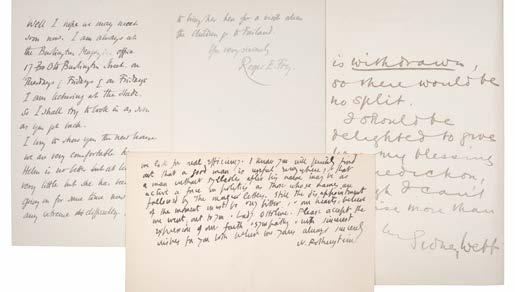 Well I hope we may meet
soon now. I am always at
the Burlington Magazine office
17 Old Burlington Street on
Thursdays & Fridays & on Fridays
I am lecturing at the Slade.
So I shall try to look in as soon
as you get back.
I long to show you the new house
we are very comfortable
Helen is no better but at
very little but she has
going on for some time now
any extreme difficulty.
to bring her here for a visit when
the children go to Failand.
Yrs very sincerely
Roger E. Fry.
is withdrawn,
so there would be
no split.
I should be
delighted to give
my blessing
I can't
more than
Sidney Webb
we look for real efficiency. I know you will quickly find
out that a good man is useful everywhere, & that
a man without
active a force in politics as those whose names are
followed by the magic letters. Still the disappointment
of the moment must be very bitter & our hearts, believe
me went out to you & Lady Ottoline. Please accept the
expression of our faith & sympathy & with sincerest
wishes for you both believe me yours always sincerely
W. Rothenstein